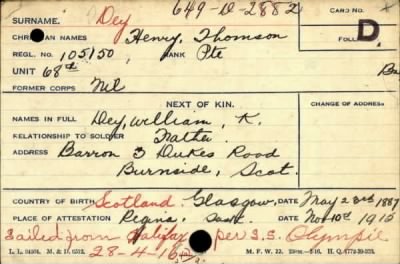 649-D-2882
CARD NO.
SURNAME. Dey
CHRISTIAN NAMES Henry, Thomson
FOLL
D.
REGL. NO. 105150, RANK Pte
UNIT 68th
FORMER CORPS Nil
NEXT OF KIN.
CHANGE OF ADDRESS
NAMES IN FULL Dey, William, K.
RELATIONSHIP TO SOLDIER Father
ADDRESS Barron 3 Dukes Road
Burnside, Scot.
COUNTRY OF BIRTH Scotland Glasgow, DATE May 23rd 1887
PLACE OF ATTESTATION Regina, Sask. DATE Nov 10th 1915
Sailed from Halifax per S.S. Olympic
28-4-16
L. L. 94508. M. & D. 6512. M. F. W. 22.